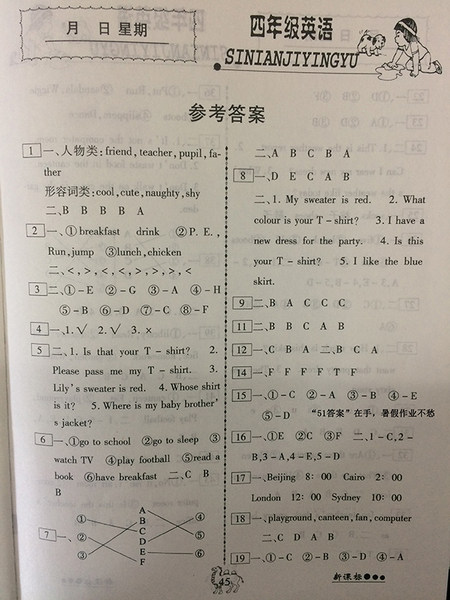 月 日 星期
四年级英语
SINIANJIYINGYU
参考答案
1 一、人物类:friend,teacher,pupil,fa-
ther
形容词类:cool,cute,naughty,shy
二、B B B B A
2 一、①breakfast drink ②P.E.,
Run,jump ③lunch,chicken
二、<,>,<,>,>,>,>,<
3 二、①-E ②-G ③-A ④-H
⑤-B ⑥-D ⑦-C ⑧-F
4 一、1.√ 2.√ 3.×
5 二、1. Is that your T-shirt? 2.
Please pass me my T-shirt. 3.
Lily's sweater is red. 4. Whose shirt
is it? 5. Where is my baby brother'
s jacket?
6 一、①go to school ②go to sleep ③
watch TV ④play football ⑤read a
book ⑥have breakfast 二、C B
B
7 一、
① ② ③
A B C D E F
④ ⑤ ⑥
二、A B C B A
8 一、D E C A B
二、1. My sweater is red. 2. What
colour is your T-shirt? 3. I have a
new dress for the party. 4. Is this
your T-shirt? 5. I like the blue
skirt.
9 二、B A C C C
11 二、B B C A B
12 一、C B A 二、B C A
14 一、F F F F T F
15 一、①-C ②-A ③-B ④-E
⑤-D “51答案”在手,暑假作业不愁
16 一、①E ②C ③F 二、1-C,2-
B,3-A,4-E,5-D
17 一、Beijing 8:00 Cairo 2:00
London 12:00 Sydney 10:00
18 一、playground,canteen,fan,computer
二、C D A B
19 一、①-C ②-B ③-D ④-A
45
新课标